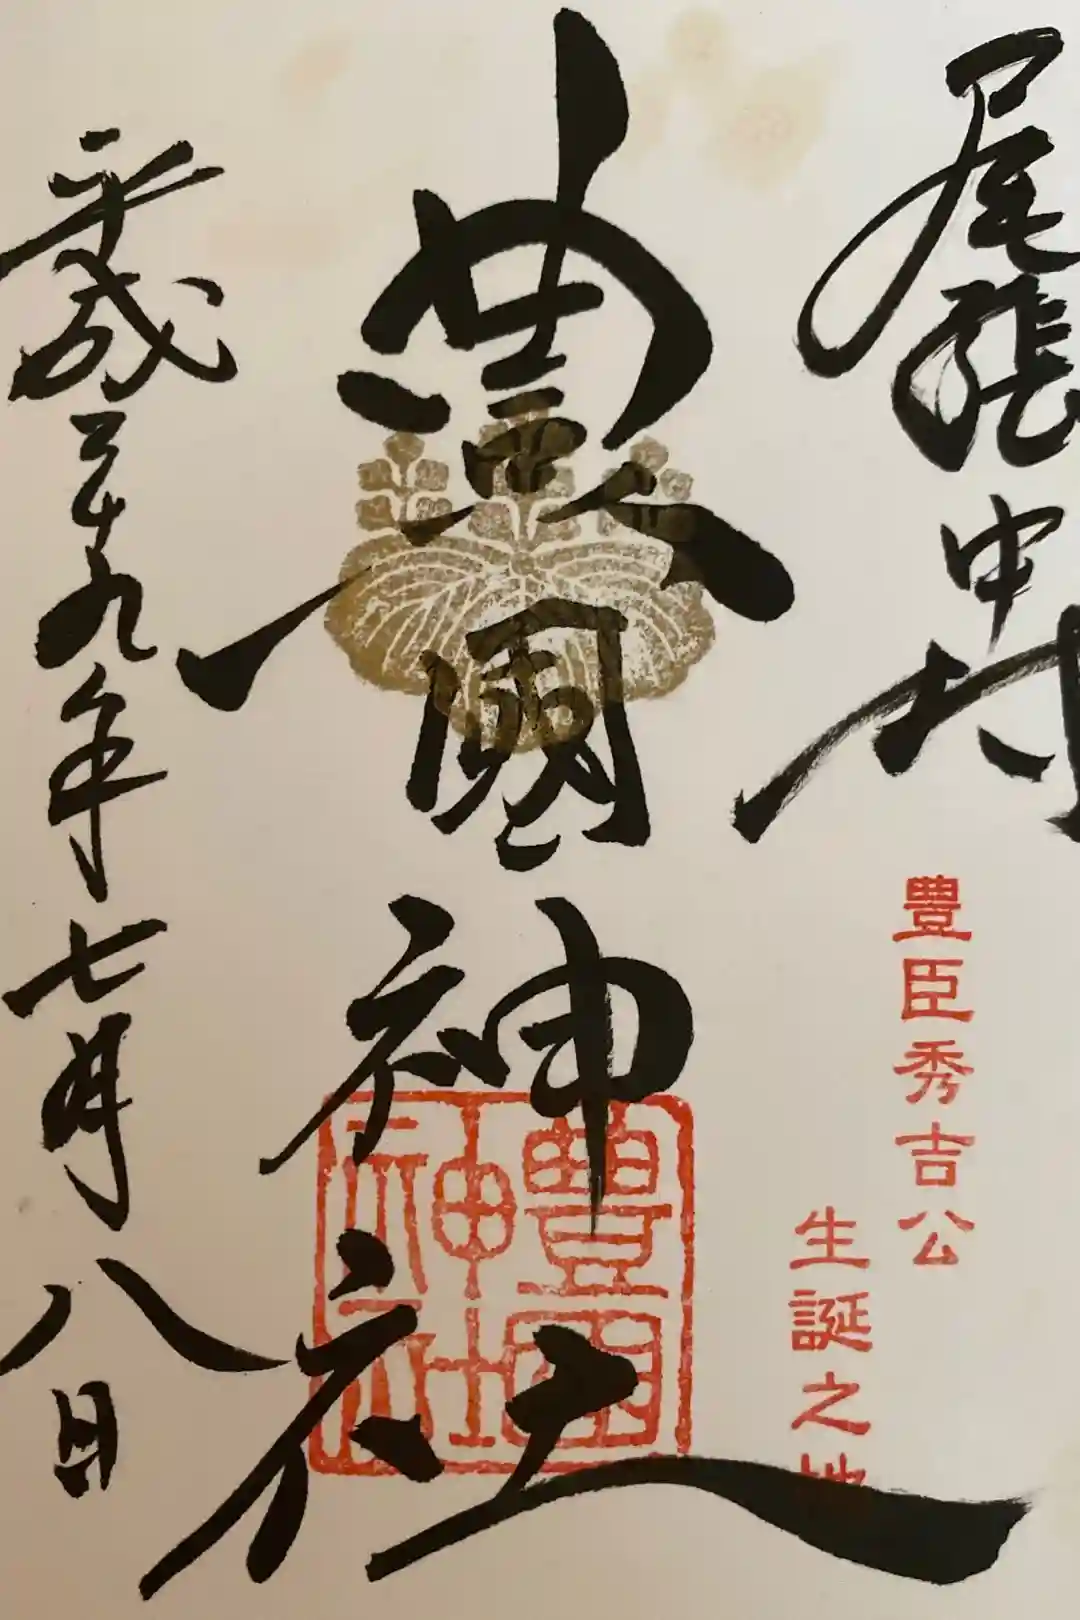 尾張中村
豊臣秀吉公
生誕之地
豊國神社
豊國神社
平成二十九年七月八日